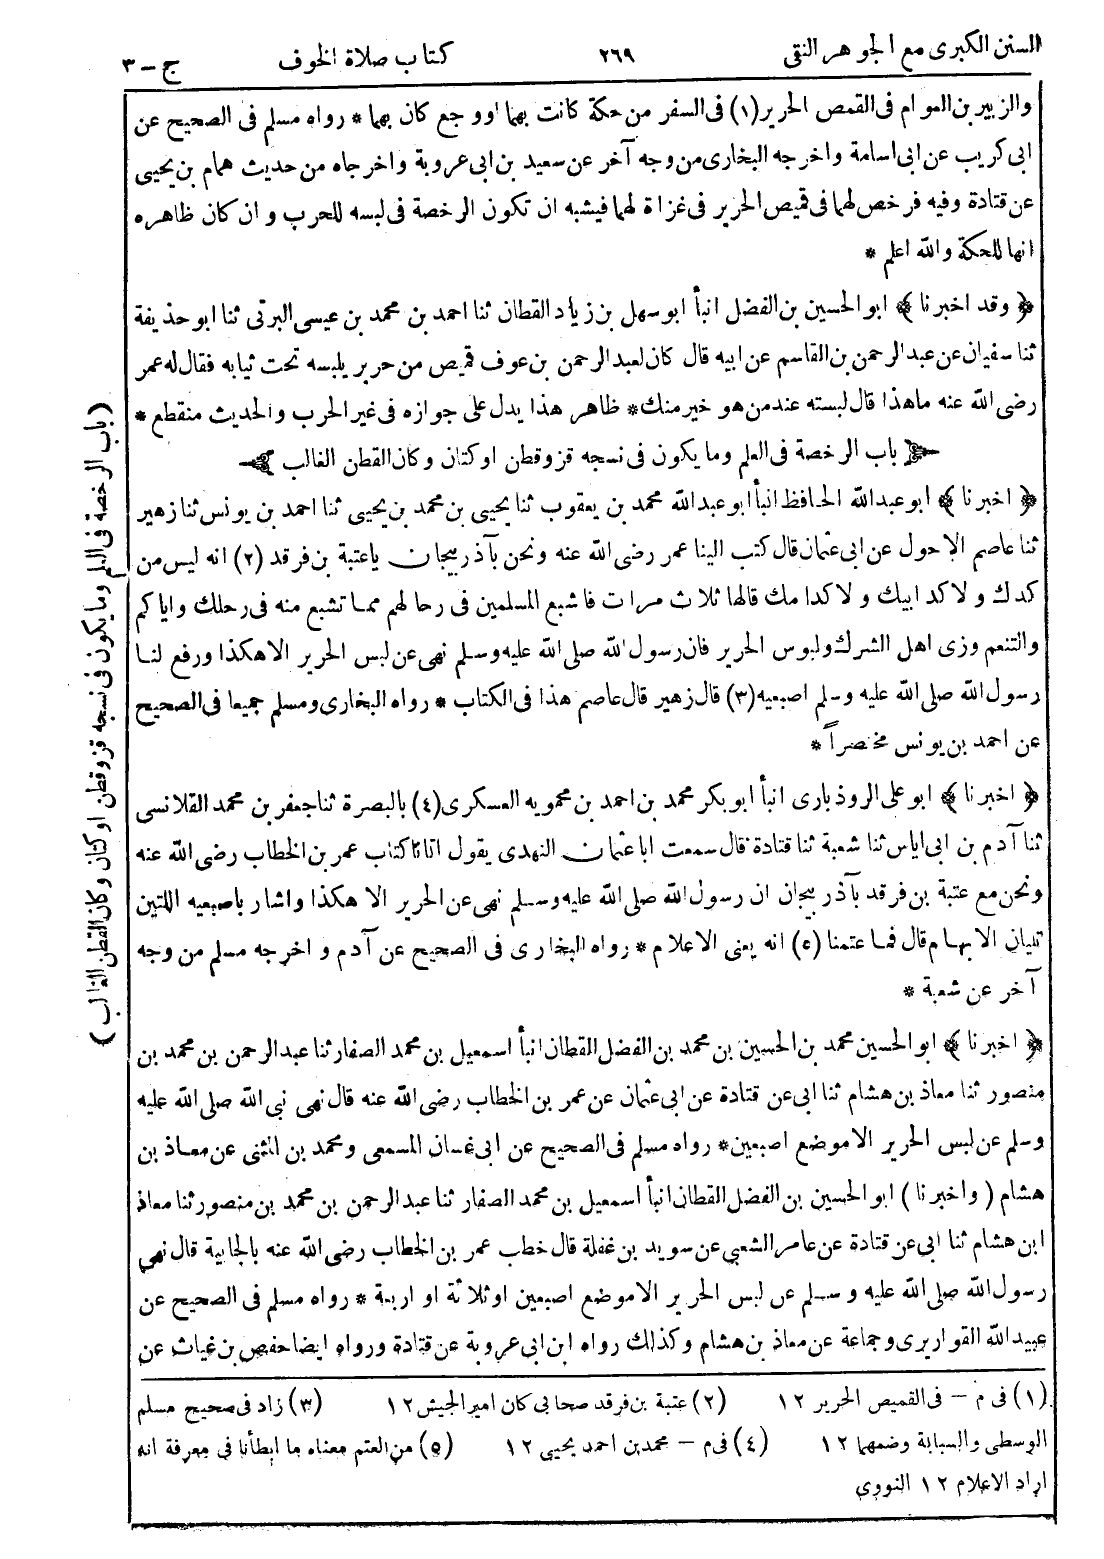 السنن الكبرى مع الجوهر النقى ٢٦٩ كتاب صلاة الخوف ج - ٣
والزبير بن العوام فى القمص الحرير (١) فى السفر من حكة كانت بهما او وجع كان بهما * رواه مسلم فى الصحيح عن
ابى كريب عن ابى اسامة واخرجه البخارى من وجه آخر عن سعيد بن ابى عروبة واخرجاه من حديث همام بن يحيى
عن قتادة وفيه فرخص لهما فى قميص الحرير فى غزاة لهما فيشبه ان تكون الرخصة فى لبسه للحرب و ان كان ظاهره
انها للحكة والله اعلم *
﴿ وقد اخبرنا ﴾ ابو الحسين بن الفضل انبأ ابو سهل بن زياد القطان ثنا احمد بن محمد بن عيسى البرتى ثنا ابو حذيفة
ثنا سفيان عن عبد الرحمن بن القاسم عن ابيه قال كان لعبد الرحمن بن عوف قميص من حرير يلبسه تحت ثيابه فقال له عمر
رضى الله عنه ما هذا قال لبسته عند من هو خير منك * ظاهر هذا يدل على جوازه فى غير الحرب والحديث منقطع *
باب الرخصة فى العلم وما يكون فى نسجه قز وقطن او كتان وكان القطن الغالب
﴿ اخبرنا ﴾ ابو عبد الله الحافظ انبأ ابو عبد الله محمد بن يعقوب ثنا يحيى بن محمد بن يحيى ثنا احمد بن يونس ثنا زهير
ثنا عاصم الاحول عن ابى عثمان قال كتب الينا عمر رضى الله عنه ونحن بآذربيجان يا عتبة بن فرقد (٢) انه ليس من
كدك و لا كد ابيك و لا كد امك قالها ثلاث مرات فاشبع المسلمين فى رحالهم مما تشبع منه فى رحلك واياكم
والتنعم وزى اهل الشرك ولبوس الحرير فان رسول الله صلى الله عليه وسلم نهى عن لبس الحرير الا هكذا ورفع لنا
رسول الله صلى الله عليه وسلم اصبعيه (٣) قال زهير قال عاصم هذا فى الكتاب * رواه البخارى ومسلم جميعا فى الصحيح
عن احمد بن يونس مختصراً *
﴿ اخبرنا ﴾ ابو على الروذبارى انبأ ابو بكر محمد بن احمد بن محمويه العسكرى (٤) بالبصرة ثنا جعفر بن محمد القلانسى
ثنا آدم بن ابى اياس ثنا شعبة ثنا قتادة قال سمعت ابا عثمان النهدى يقول اتانا كتاب عمر بن الخطاب رضى الله عنه
ونحن مع عتبة بن فرقد بآذربيجان ان رسول الله صلى الله عليه وسلم نهى عن الحرير الا هكذا واشار باصبعيه اللتين
تليان الابهام قال فما عتمنا (٥) انه يعنى الاعلام * رواه البخارى فى الصحيح عن آدم و اخرجه مسلم من وجه
آخر عن شعبة *
﴿ اخبرنا ﴾ ابو الحسين محمد بن الحسين بن محمد بن الفضل القطان انبأ اسمعيل بن محمد الصفار ثنا عبد الرحمن بن محمد بن
منصور ثنا معاذ بن هشام ثنا ابى عن قتادة عن ابى عثمان عن عمر بن الخطاب رضى الله عنه قال نهى نبى الله صلى الله عليه
وسلم عن لبس الحرير الا موضع اصبعين * رواه مسلم فى الصحيح عن ابى غسان المسمعى ومحمد بن المثنى عن معاذ بن
هشام ( واخبرنا ) ابو الحسين بن الفضل القطان انبأ اسمعيل بن محمد الصفار ثنا عبد الرحمن بن محمد بن منصور ثنا معاذ
ابن هشام ثنا ابى عن قتادة عن عامر الشعبي عن سويد بن غفلة قال خطب عمر بن الخطاب رضى الله عنه بالجابية قال نهى
رسول الله صلى الله عليه وسلم عن لبس الحرير الا موضع اصبعين او ثلاثة او اربعة * رواه مسلم فى الصحيح عن
عبيد الله القواريرى وجماعة عن معاذ بن هشام وكذلك رواه ابن ابى عروبة عن قتادة ورواه ايضا حفص بن غياث عن
(١) فى م – فى القميص الحرير ١٢ (٢) عتبة بن فرقد صحابى كان امير الجيش ١٢ (٣) زاد فى صحيح مسلم
الوسطى والسبابة وضمهما ١٢ (٤) فى م – محمد بن احمد يحيى ١٢ (٥) من العتم معناه ما ابطأنا فى معرفة انه
اراد الاعلام ١٢ النووي
(باب الرخصة فى العلم وما يكون فى نسجه قز وقطن او كتان وكان القطن الغالب)